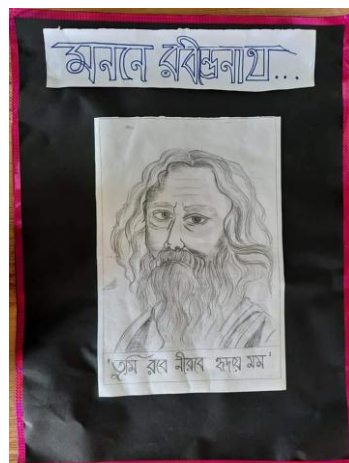 মননে রবীন্দ্রনাথ...
'তুমি রবে নীরবে হৃদয় মম'